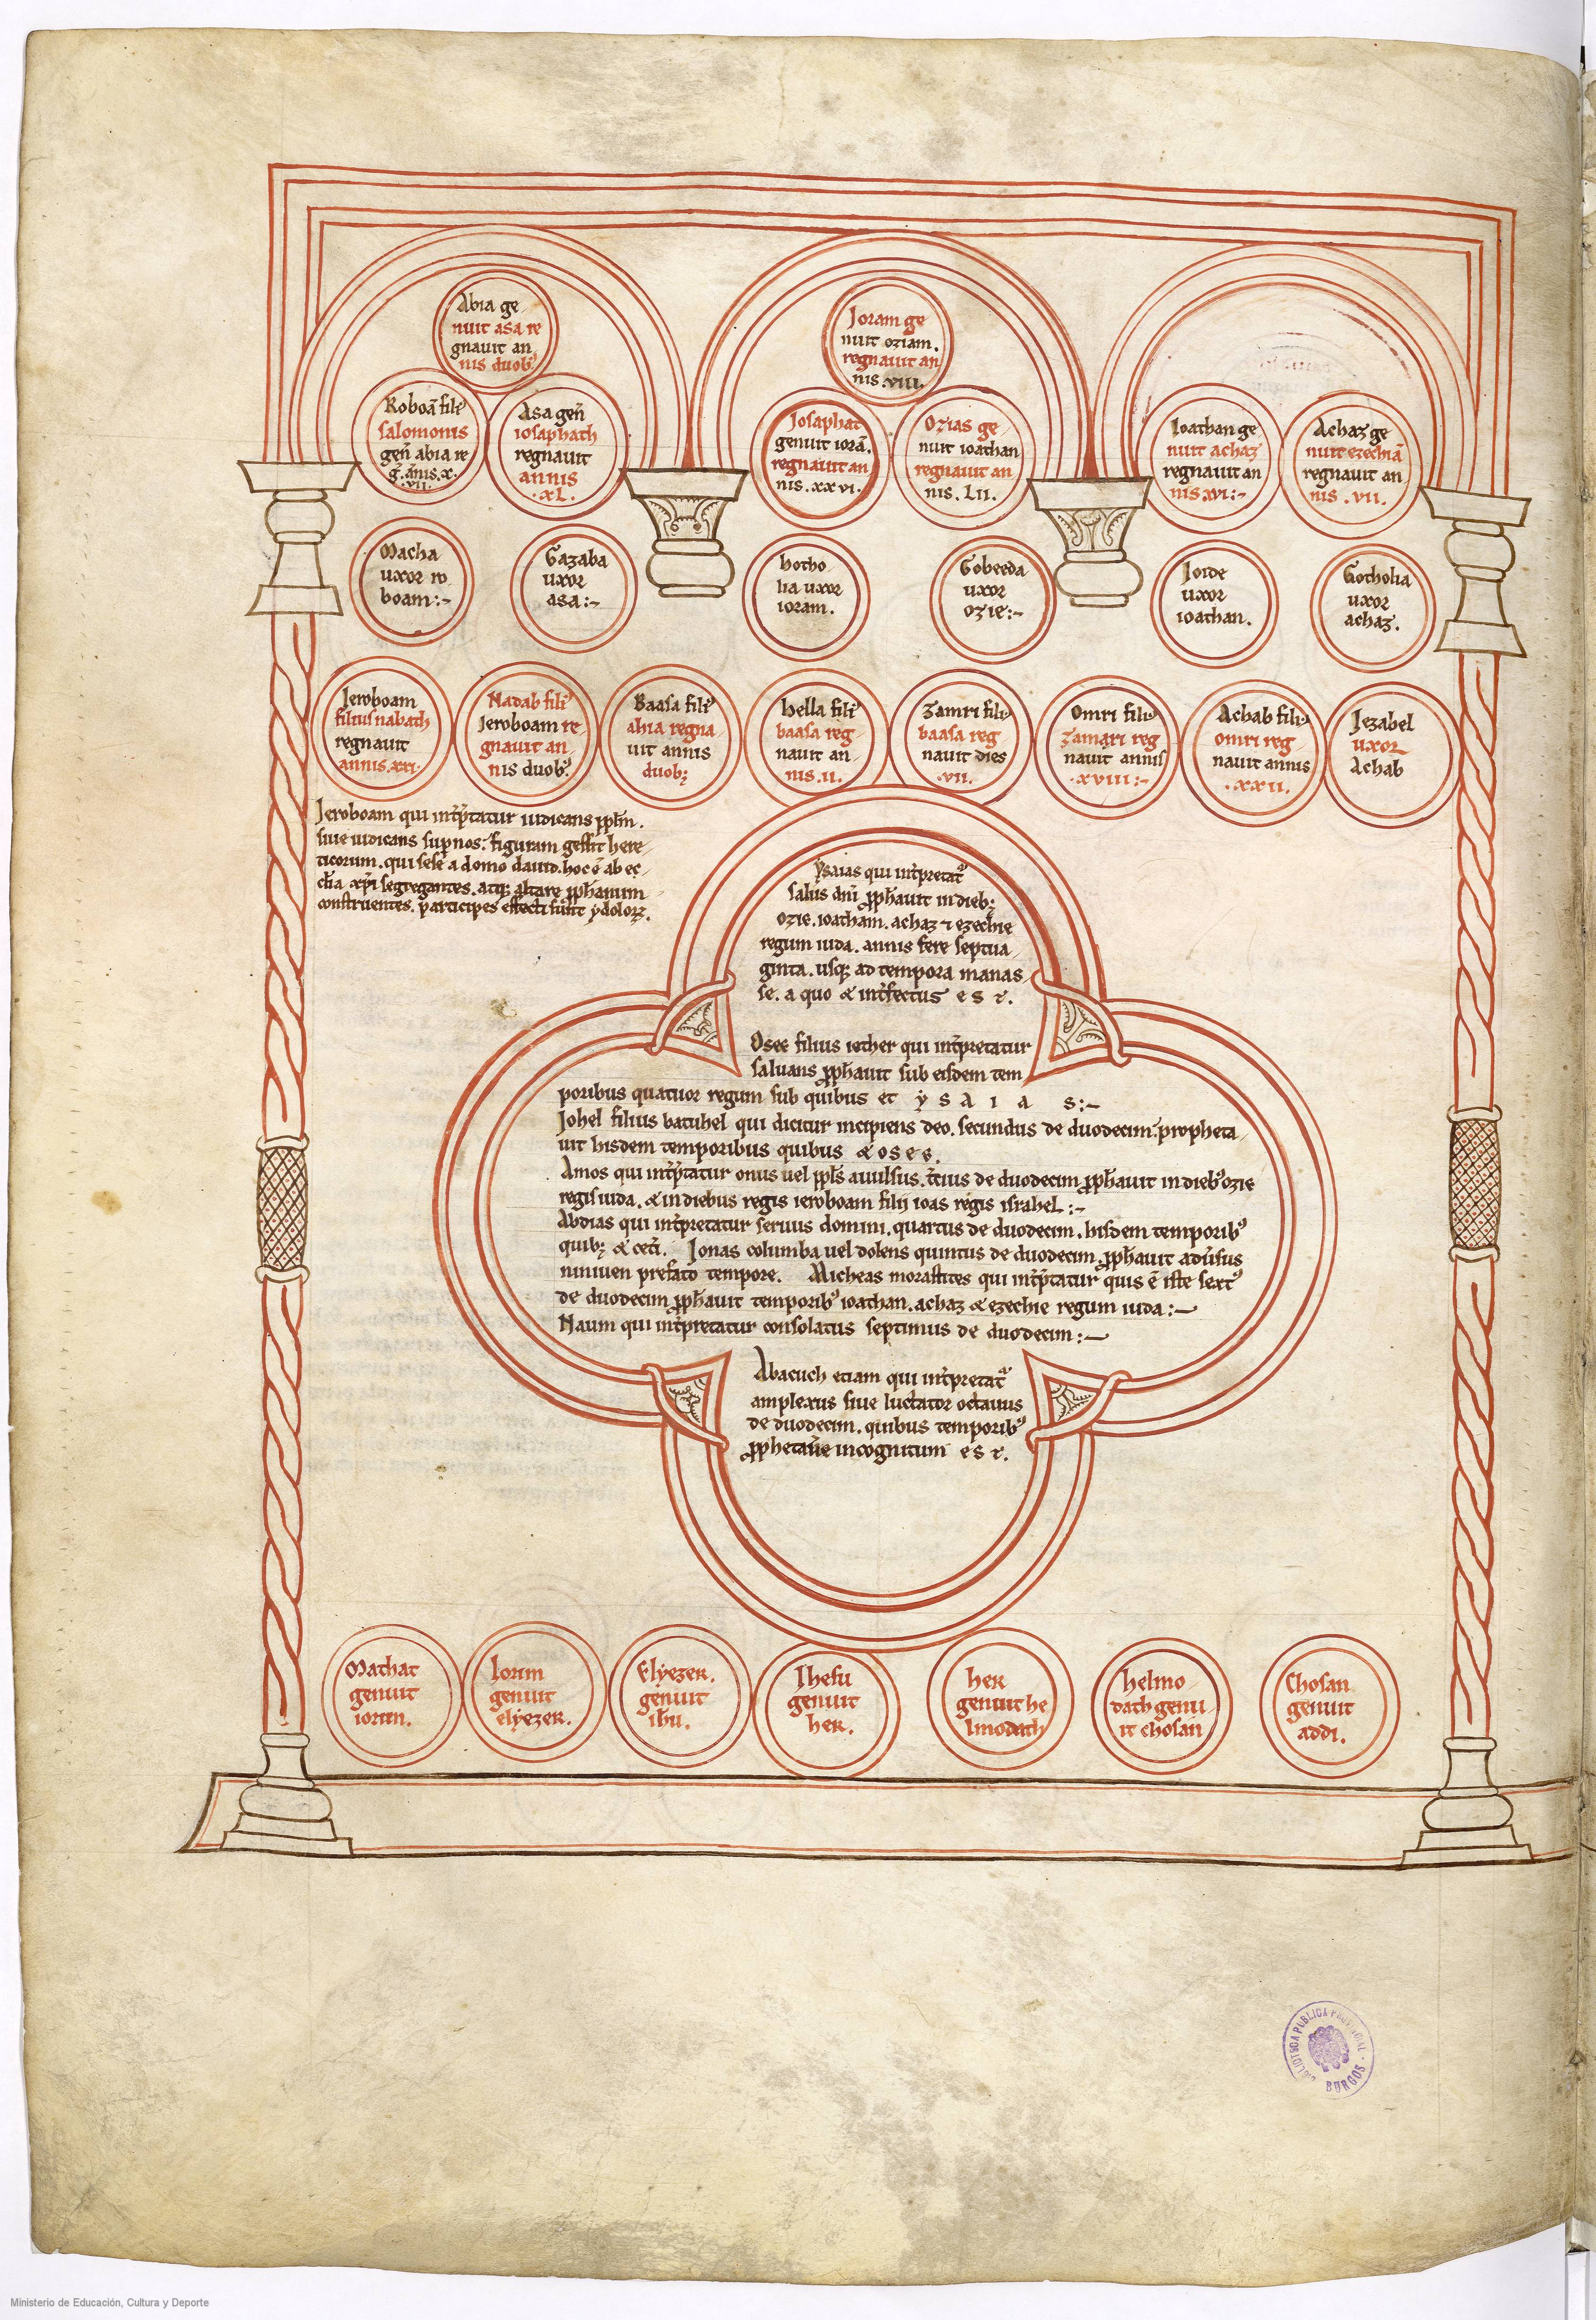 Abia ge
nuit asa re
gnauit an
nis duob᷒
Roboā fili᷒
salomonis
geñ abia re
g. ãnis .x.
.vii.
Asa geñ
iosaphath
regnauit
annis
.xl.
Joram ge
nuit oziam.
regnauit an
nis .viii.
Josaphat
genuit iorã.
regnauit an
nis .xxvi.
Ozias ge
nuit ioathan
regnauit an
nis .Lii.
Ioathan ge
nuit achaz
regnauit an
nis xvi:-
Achaz ge
nuit ezechiā
regnauit an
nis .vii.
Macha
uxor ro
boam:-
Gazaba
uxor
asa:-
hotho
lia uxor
ioram.
Gobeeda
uxor
ozie:-
Joide
uxor
ioathan.
Gotholia
uxor
achaz.
Jeroboam
filius nabath
regnauit
annis .xxi.
Nadab fili᷒
Jeroboam re
gnauit an
nis duob᷒.
Baasa fili᷒
ahia regna
uit annis
duob;
hella fili᷒
baasa reg
nauit an
nis .ii.
Zamri fili᷒
baasa reg
nauit dies
.vii.
Omri fili᷒
zamari reg
nauit annis
.xviii:-
Achab fili᷒
omri reg
nauit annis
.xxii.
Jezabel
uxor
Achab
Jeroboam qui int̄p̄tatur iudicans pp̄lm̄.
siue iudicans sup nos: figuram gessit here
ticorum. qui sese a domo dauid. hoc ē ab ec
clīa xp̄i segregantes. atq; altare pphanum
construentes. participes effecti sunt ydolorꝝ.
ysaias qui int̄pretat᷒
salus dn̄i pph̄auit in dieb;
ozie. ioatham. achaz ⁊ ezechie
regum iuda. annis fere septua
ginta. usq; ad tempora manas
se. a quo & int̄fectus est.
Osee filius iether qui int̄pretatur
saluans pph̄auit sub eisdem tem
poribus quatuor regum sub quibus et ysaias:-
Johel filius batuhel qui dicitur incipiens deo. secundus de duodecim: propheta
uit hisdem temporibus quibus & osee.
Amos qui int̄p̄tatur onus uel pp̄ls auulsus. t̄cius de duodecim pph̄auit in dieb᷒ ozie
regis iuda. & in diebus regis ieroboam filij ioas regis israhel:-
Abdias qui int̄pretatur seruus domini. quartus de duodecim. hisdem temporib᷒
quib; & cet̄i. Jonas columba uel dolens quintus de duodecim. pph̄auit adūsus
niniuen prefato tempore. Micheas morastites qui int̄p̄tatur quis ē iste sext᷒
de duodecim pph̄auit temporib᷒ ioathan. achaz & ezechie regum iuda:-
Naum qui int̄pretatur consolatus septimus de duodecim:-
Abacuch etiam qui int̄pretat᷒
amplexus siue luctator octauus
de duodecim. quibus temporib᷒
pphetaūe incognitum est.
Mathat
genuit
iorim.
Jorim
genuit
elyezer.
Elyezer.
genuit
ih̄u.
Jhesu
genuit
her.
her
genuit he
lmodath
helmo
dach genu
it chosan
Chosan
genuit
addi.
BIBLIOTECA PUBLICA PROVINCIAL
BURGOS
Ministerio de Educación, Cultura y Deporte